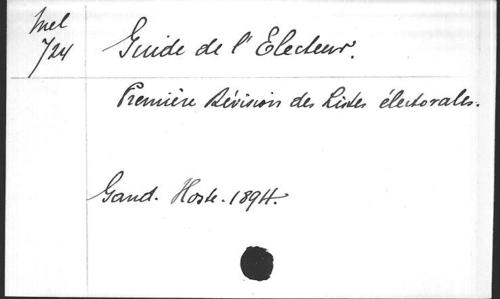 Mel
724
Guide de l'Electeur.
Première Révision des Listes électorales.
Gand. Hoste. 1894.